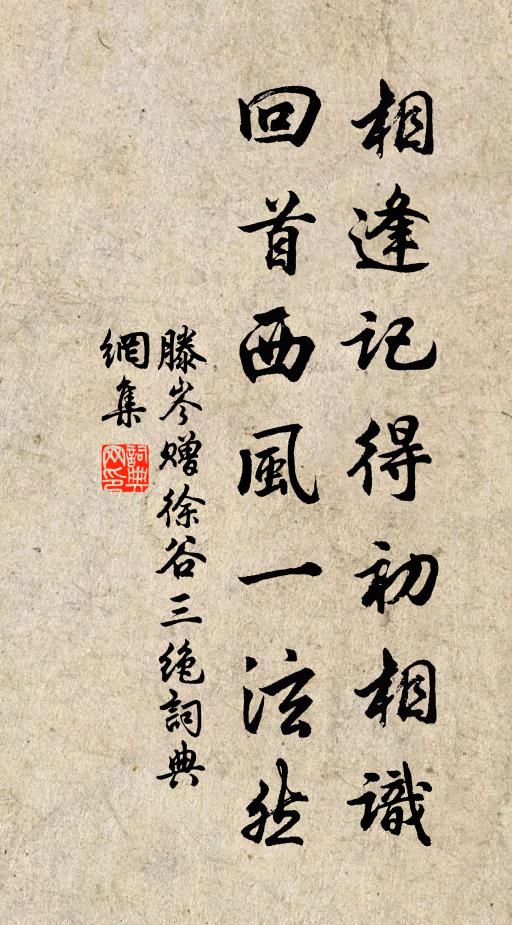 相逢記得初相識
回首西風一泫然
滕岑赠徐谷三絶詞典
網集
詞典
网印